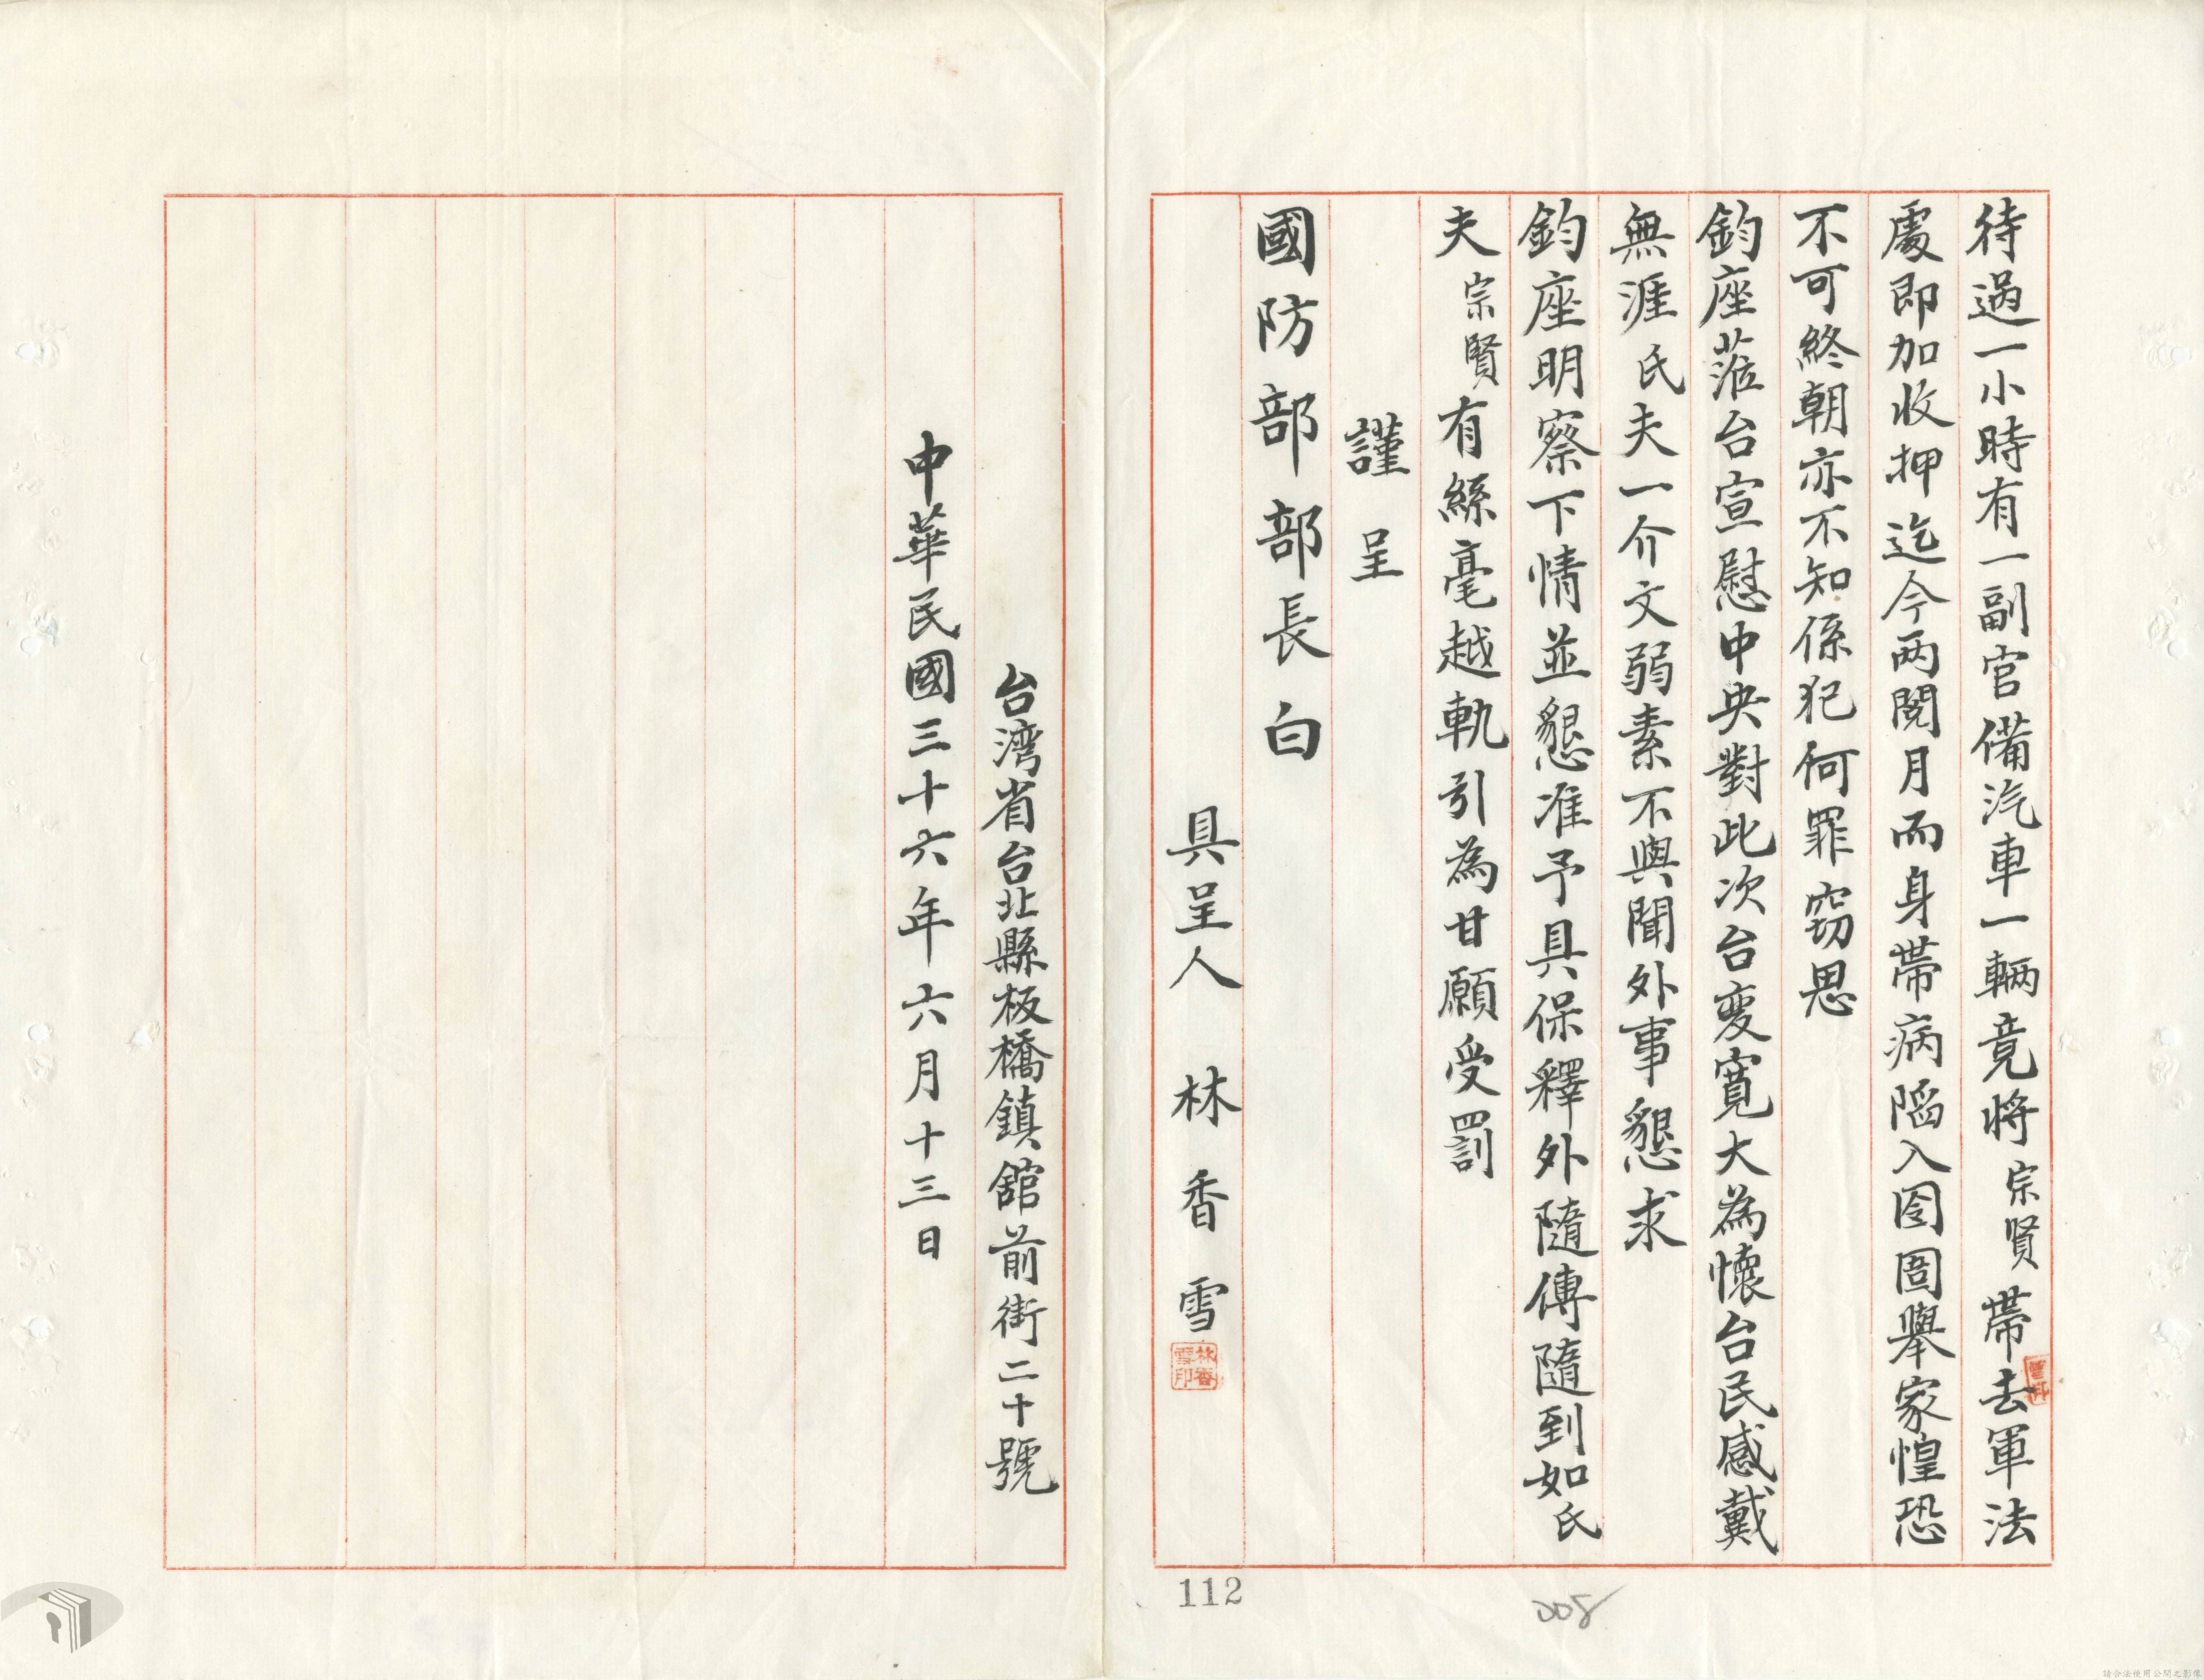 待過一小時有一副官備汽車一輛竟將宗賢帶去軍法
處即加收押迄今兩閱月而身帶病陷入囹圄舉家惶恐
不可終朝亦不知係犯何罪竊思
鈞座蒞台宣慰中央對此次台變寬大為懷台民感戴
無涯氏夫一介文弱素不與聞外事懇求
鈞座明察下情並懇准予具保釋外隨傳隨到如氏
夫宗賢有絲毫越軌引為甘願受罰
謹呈
國防部部長白
具呈人 林香雪
林香雪印
台湾省台北縣板橋鎮舘前街二十號
中華民國三十六年六月十三日
112
008
請合法使用公開之影像